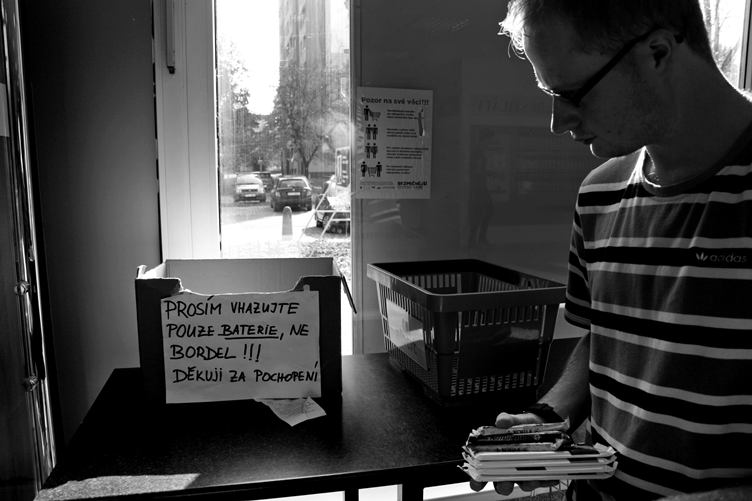 Pozor na své věci!!!
BEZPEČNĚJI
PROSÍM VHAZUJTE
POUZE BATERIE, NE
BORDEL !!!
DĚKUJI ZA POCHOPENÍ
adidas